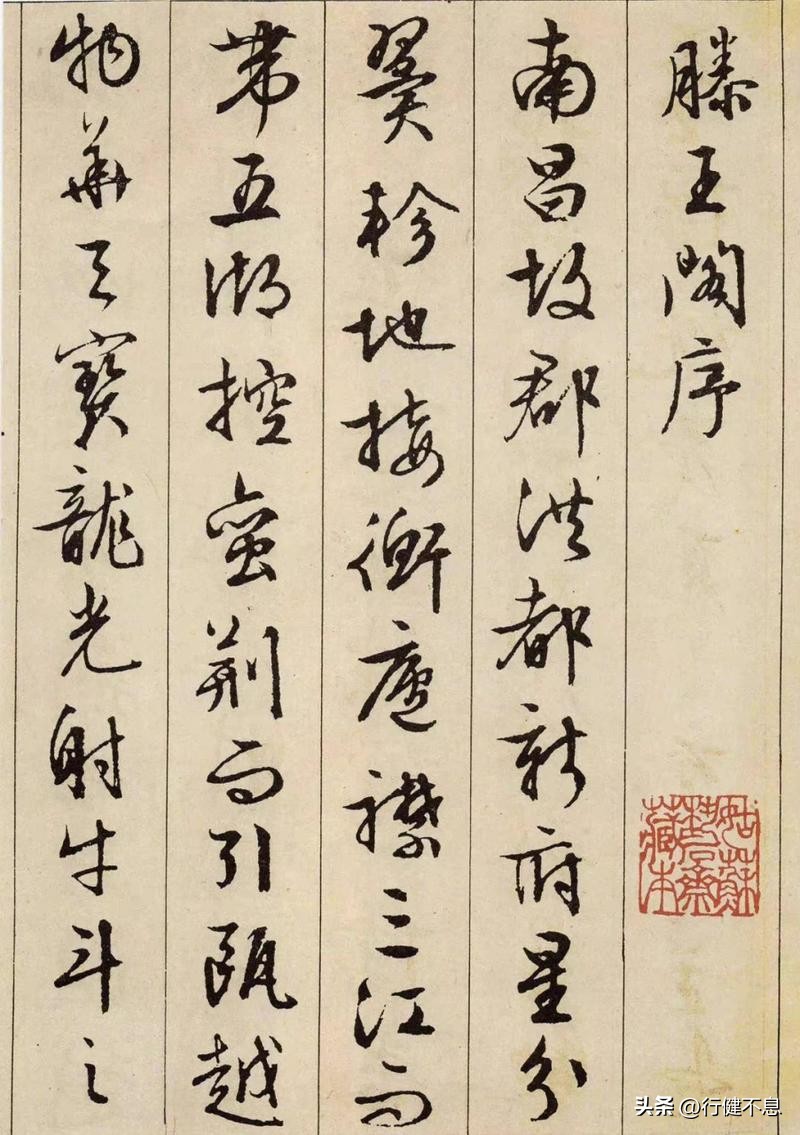 滕王閣序
南昌故郡洪都新府星分
翼軫地接衡廬襟三江而
帶五湖控蛮荊而引甌越
物華天寶龍光射牛斗之
姑蘇
齋
藏本
头条 @行健不息